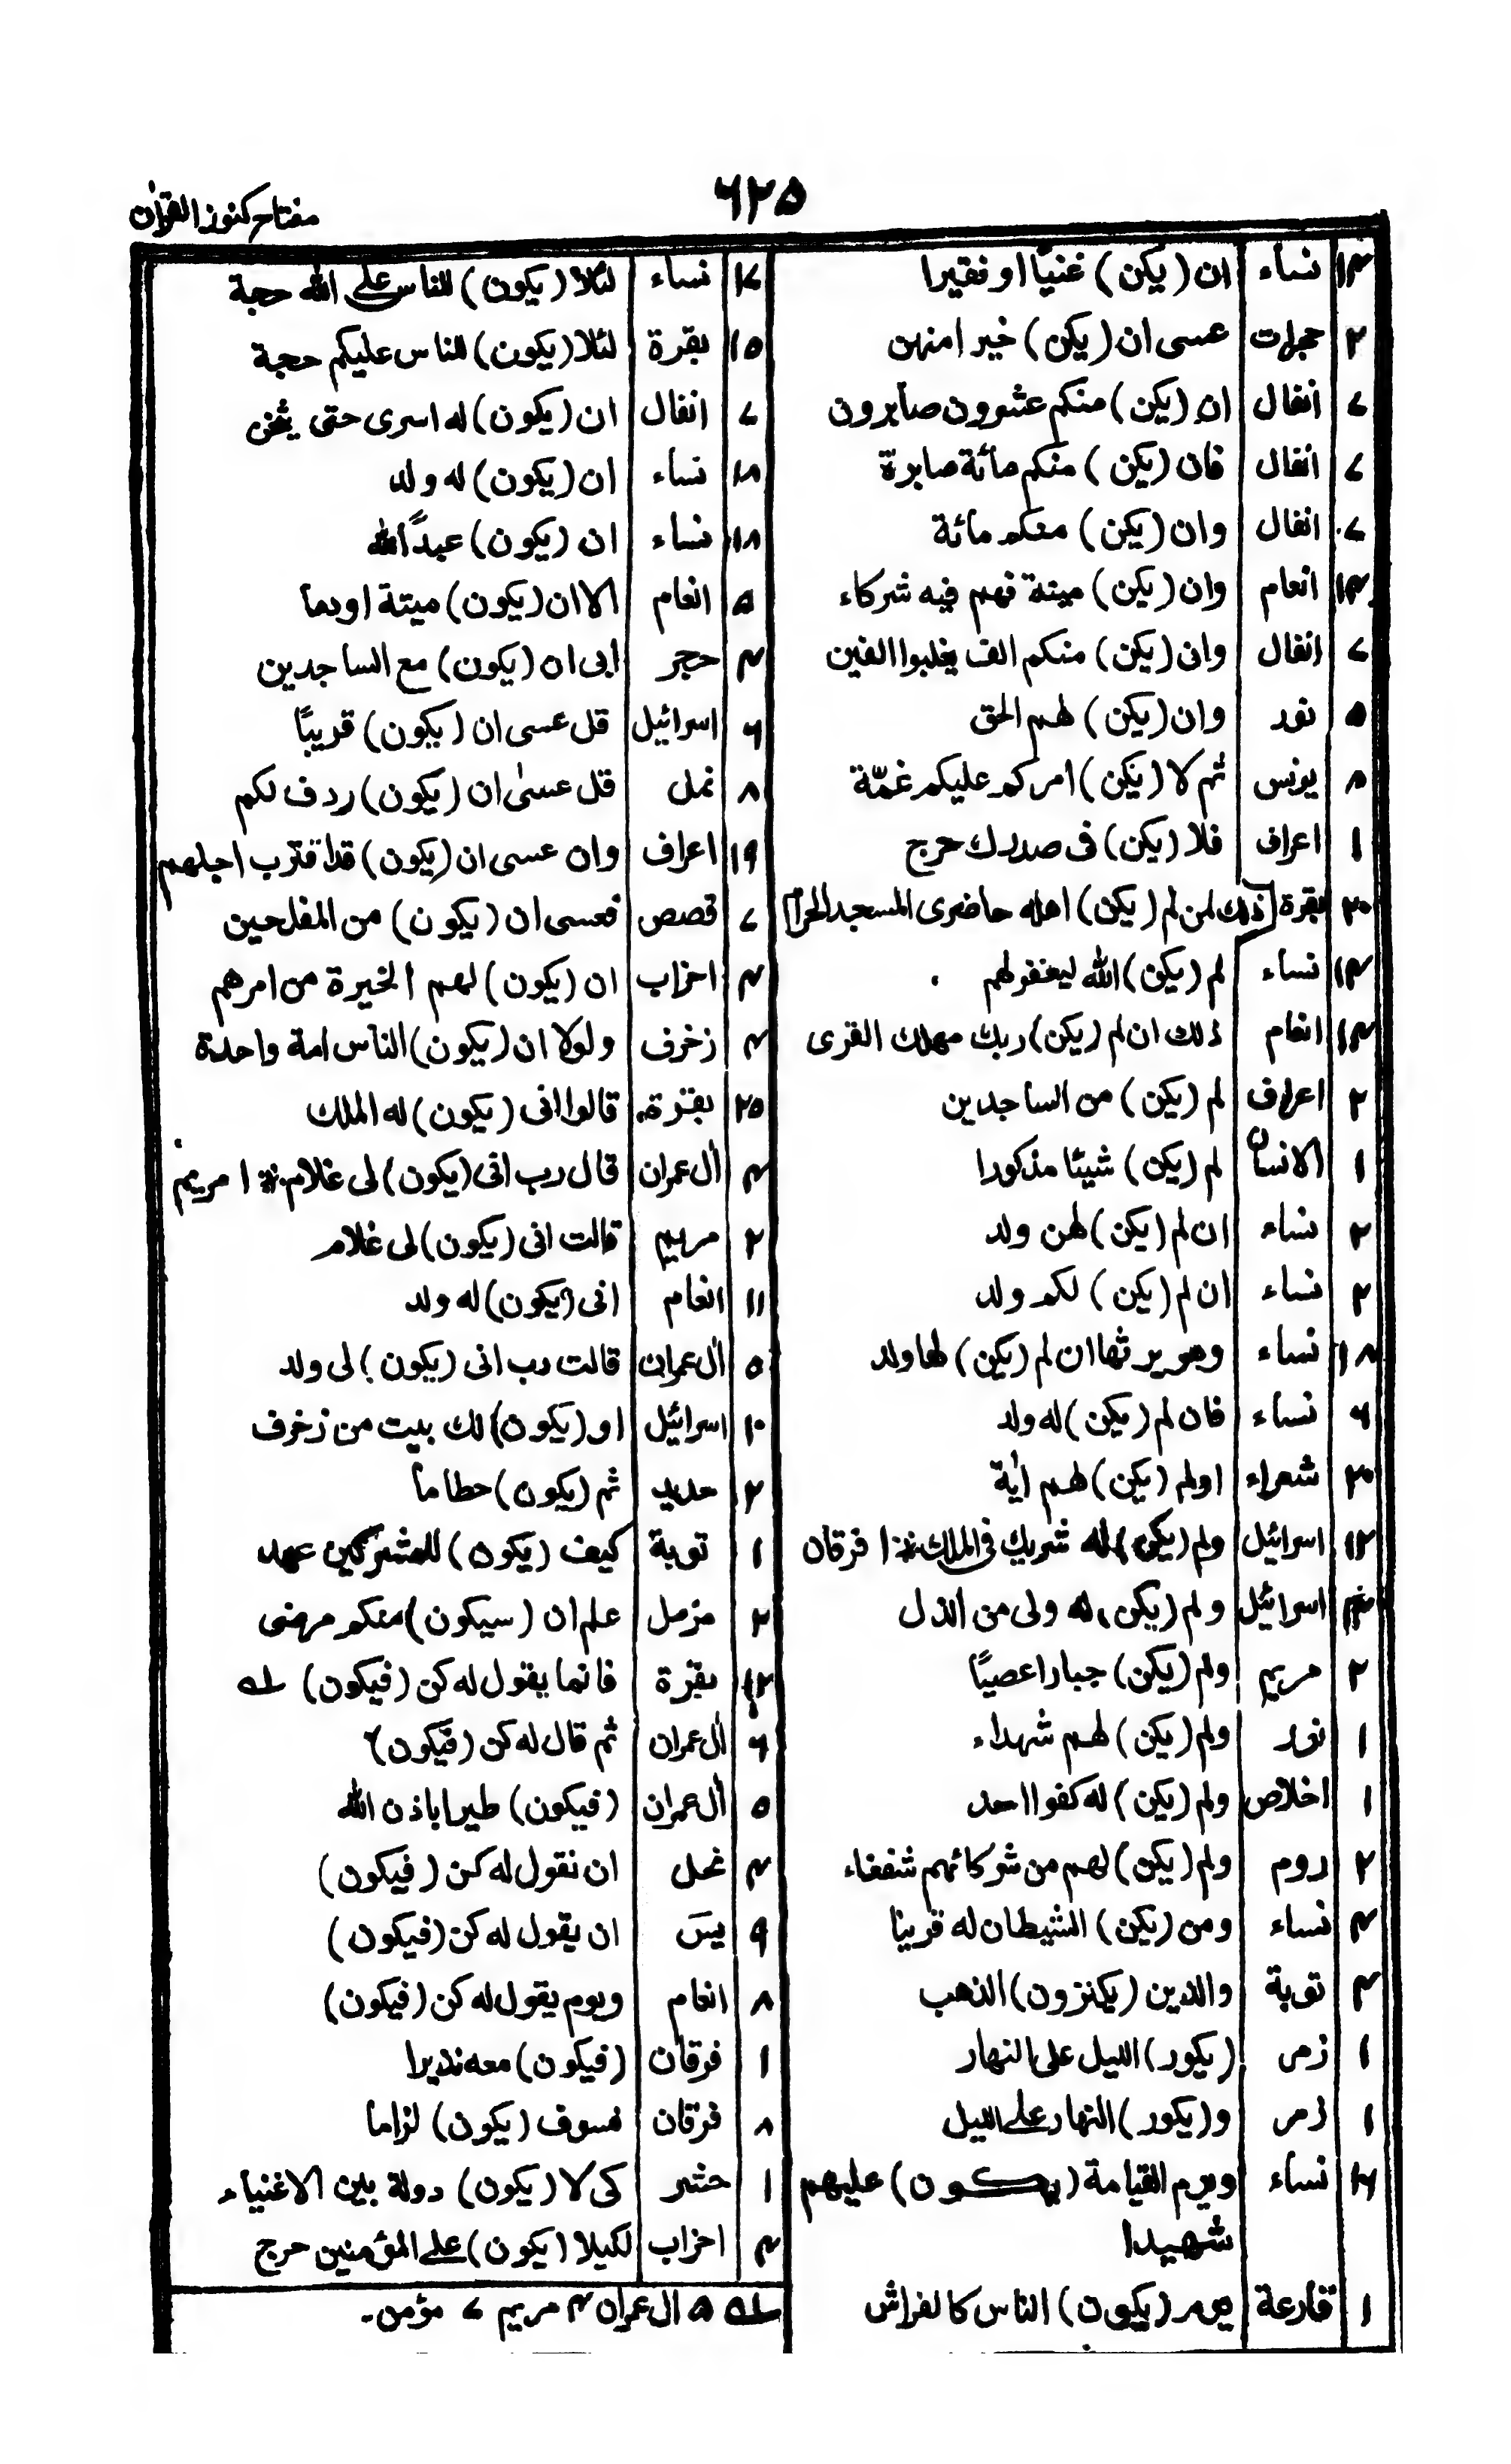 ۶۲۵
مفتاح کنوز القرآن
۱۳ نساء ان (يكن) غنيًّا او فقيرا
۲ حجرات عسى ان (يكن) خيرا منهن
۷ انفال ان (يكن) منكم عشرون صابرون
۷ انفال فان (يكن) منكم مائة صابرة
۷ انفال وان (يكن) منكم مائة
۱۳ انعام وان (يكن) ميتة فهم فيه شركاء
۷ انفال وان (يكن) منكم الف يغلبوا الفين
۵ نور وان (يكن) لهم الحق
۸ يونس ثم لا (يكن) امركم عليكم غمّة
۱ اعراف فلا (يكن) فى صدرك حرج
۲۰ بقرة ذلك لمن لم (يكن) اهله حاضرى المسجد الحرام
۱۳ نساء لم (يكن) الله ليغفر لهم
۱۳ انعام ذلك ان لم (يكن) ربك مهلك القرى
۲ اعراف لم (يكن) من الساجدين
۱ الانسان لم (يكن) شيئا مذكورا
۲ نساء ان لم (يكن) لهن ولد
۲ نساء ان لم (يكن) لكم ولد
۱۸ نساء وهو يرثها ان لم (يكن) لها ولد
۶ نساء فان لم (يكن) له ولد
۲۰ شعراء اولم (يكن) لهم اٰية
۱۲ اسرائيل ولم (يكن) له شريك فى الملك ؞ ۱ فرقان
اسرائيل ولم (يكن) له ولى من الذل
۲ مريم ولم (يكن) جبارا عصيًّا
۱ نور ولم (يكن) لهم شهداء
۱ اخلاص ولم (يكن) له كفوا احد
۲ روم ولم (يكن) لهم من شركائهم شفعاء
۳ نساء ومن (يكن) الشيطان له قرينا
۳ توبة والذين (يكنزون) الذهب
۱ زمر (يكور) الليل على النهار
۱ زمر و (يكور) النهار على الليل
۱۶ نساء ويوم القيامة (يكون) عليهم
شهيدا
۱ قارعة يوم (يكون) الناس كالفراش
۱۷ نساء لئلا (يكون) للناس على الله حجة
۱۵ بقرة لئلا (يكون) للناس عليكم حجة
۷ انفال ان (يكون) له اسرى حتى يثخن
۱۸ نساء ان (يكون) له ولد
۱۸ نساء ان (يكون) عبدًا لله
۵ انعام الا ان (يكون) ميتة او دما
۳ حجر ابى ان (يكون) مع الساجدين
۶ اسرائيل قل عسى ان (يكون) قريبًا
۸ نمل قل عسىٰ ان (يكون) ردف لكم
۱۹ اعراف وان عسى ان (يكون) قد اقترب اجلهم
۷ قصص فعسى ان (يكون) من المفلحين
۳ احزاب ان (يكون) لهم الخيرة من امرهم
۳ زخرف ولولا ان (يكون) الناس امة واحدة
۲۵ بقرة قالوا انى (يكون) له الملك
۳ اٰل عمران قال رب انى (يكون) لى غلام ؞ ۱ مريم
۲ مريم قالت انى (يكون) لى غلام
۱۱ انعام انى (يكون) له ولد
۵ اٰل عمران قالت رب انى (يكون) لى ولد
۱۰ اسرائيل او (يكون) لك بيت من زخرف
۲ حديد ثم (يكون) حطاما
۱ توبة كيف (يكون) للمشركين عهد
۲ مزمل علم ان (سيكون) منكم مرضى
بقرة فانما يقول له كن (فيكون) له
۶ اٰل عمران ثم قال له كن (فيكون)
۵ اٰل عمران (فيكون) طيرا باذن الله
۳ نحل ان نقول له كن (فيكون)
۹ يس ان يقول له كن (فيكون)
۸ انعام ويوم يقول له كن (فيكون)
۱ فرقان (فيكون) معه نذيرا
۸ فرقان فسوف (يكون) لزاما
۱ حشر كى لا (يكون) دولة بين الاغنياء
۳ احزاب لكيلا (يكون) على المؤمنين حرج
له ۵ ال عمران ۳ مريم ۷ مؤمن۔